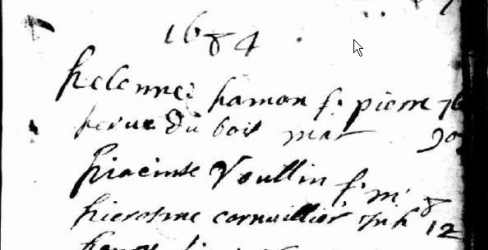 1684
helenne hamon f. pierre 76
herue du bois mat 90
hiacinte Voullin f. m. 8
hierosme cornuillier inh 12